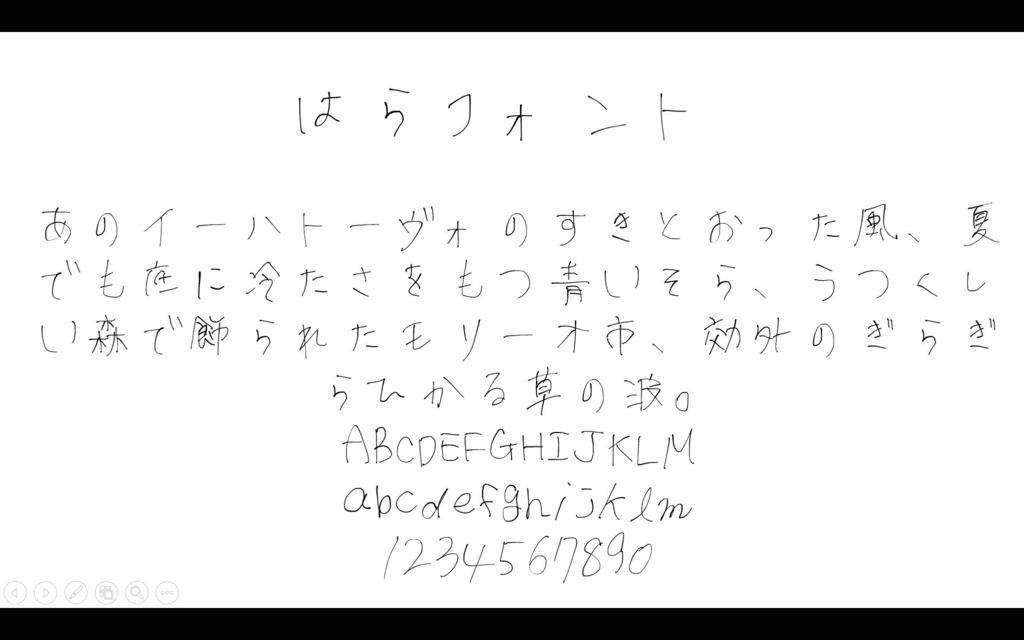 はらフォント
あのイーハトーヴォのすきとおった風、夏
でも底に冷たさをもつ青いそら、うつくし
い森で飾られたモリーオ市、郊外のぎらぎ
らひかる草の波。
ABCDEFGHIJKLM
abcdefghijklm
1234567890